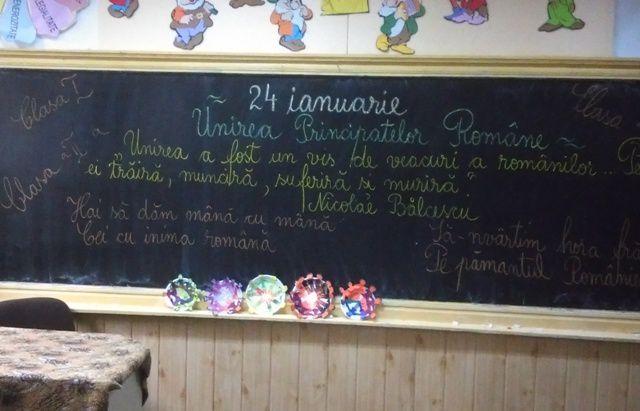 LEGALITATE
Clasa I
24 ianuarie
Clasa
~ Unirea Principatelor Române ~
Clasa a II a
"Unirea a fost un vis de veacuri a românilor... Pe
ei trăiră, munciră, suferiră și muriră"
Nicolae Bălcescu
Hai să dăm mână cu mână
Cei cu inima română
Să-nvârtim hora fră
Pe pământul Românie